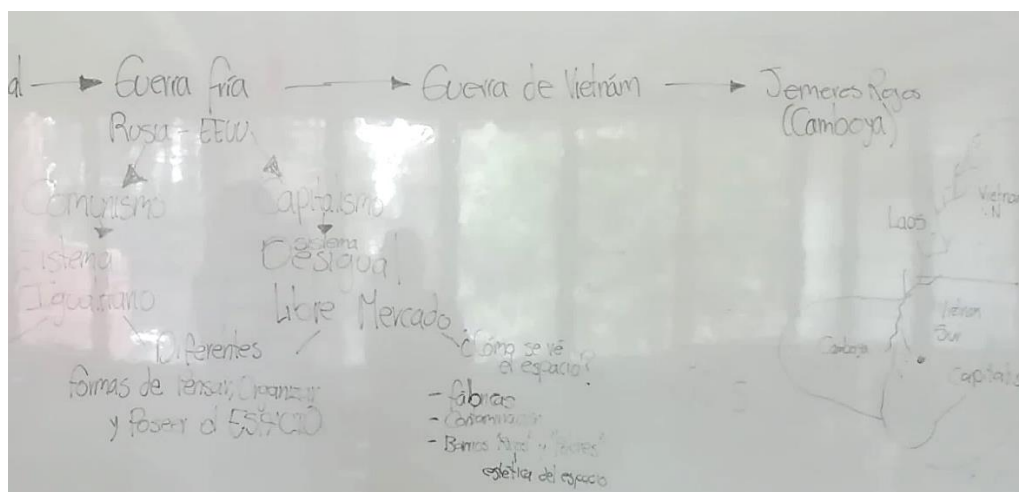 al → Guerra fría → Guerra de Vietnám → Jemeres Rojos
(Camboya)
Rusia - EEUU
Comunismo
Capitalismo
Sistema
Igualitario
sistema
Desigual
Libre Mercado
Diferentes
formas de Pensar, Organizar
y Poseer el ESPACIO
¿Cómo se vé
el espacio?
- fábricas
- Contaminación
- Barrios "Ricos" y "Pobres"
estética del espacio
Laos
Vietnam
N
Vietnam
Sur
Camboya
Capitalis